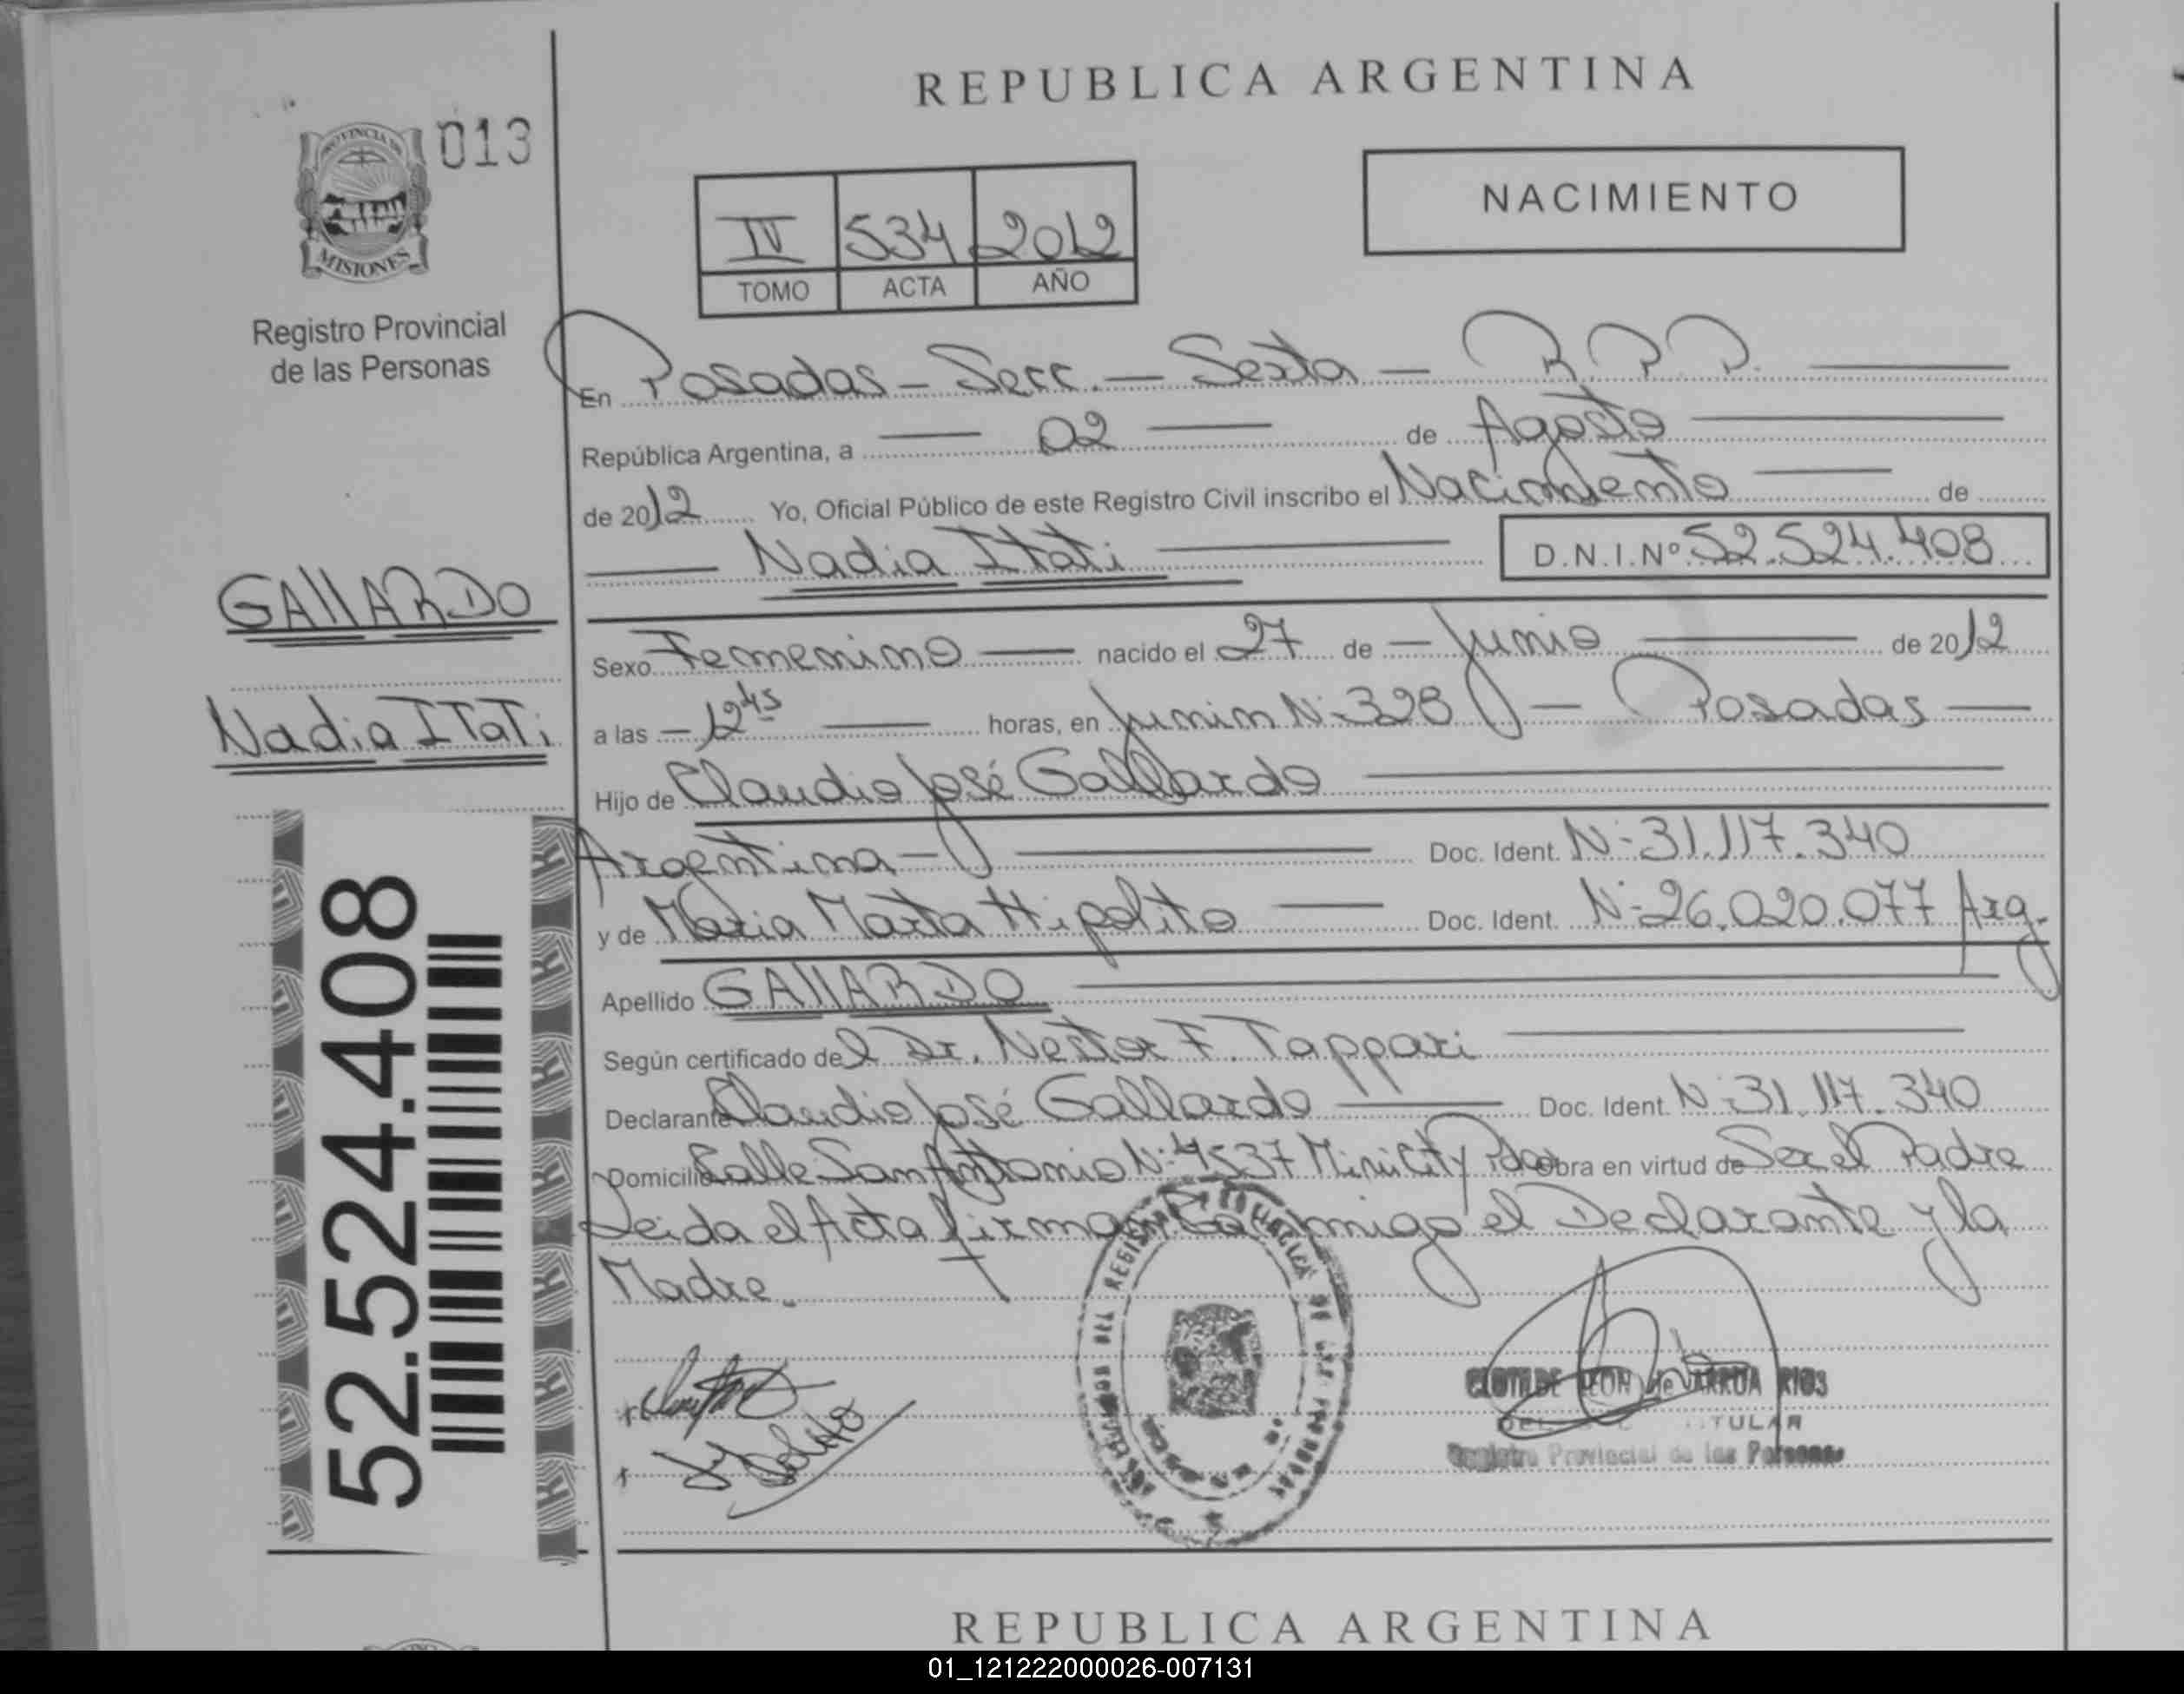 REPUBLICA ARGENTINA
PROVINCIA DE
MISIONES
013
Registro Provincial
de las Personas
NACIMIENTO
IV 534 2012
TOMO ACTA AÑO
En Posadas - Secc. - Sexta - R.P.P.
República Argentina, a 02 de Agosto
de 2012 Yo, Oficial Público de este Registro Civil inscribo el Nacimiento de
Nadia Itati D.N.I.Nº 52.524.408
GALLARDO
Nadia ITATi
52.524.408
Sexo Femenino nacido el 27 de - Junio de 2012
a las - 12 45 horas, en Junin N: 328 - Posadas
Hijo de Claudio José Gallardo
Argentina - Doc. Ident. N: 31.117.340
y de Maria Marta Hipolito Doc. Ident. N: 26.020.077 Arg.
Apellido GALLARDO
Según certificado del Dr. Nestor F. Tappari
Declarante Claudio José Gallardo Doc. Ident. N: 31.117.340
Domicilio Calle San Antonio N: 4537 Mini City Pdas Obra en virtud de Ser el Padre
Leida el Acta firman Conmigo el Declarante y la
Madre.
CLOTILDE LEON de ARRUA RIOS
TITULAR
Registro Provincial de las Personas
REPUBLICA ARGENTINA
01_121222000026-007131